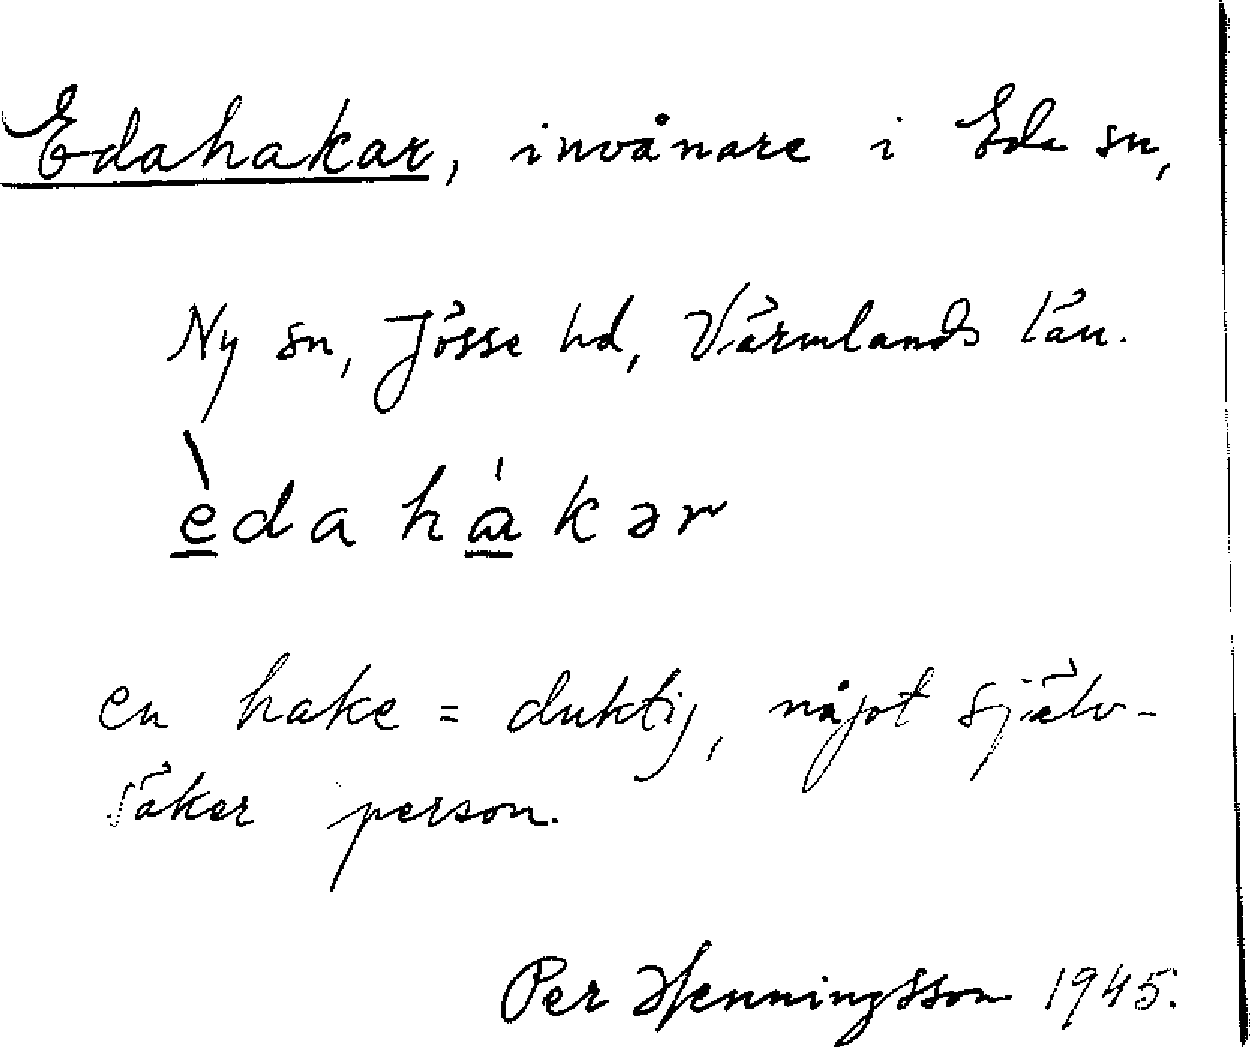 Edahakar, invånare i Eda sn,
Ny sn, Jösse hd, Värmlands län.
èdahákər
en hake = duktig, något själv-
säker person.
Per Henningsson 1945.